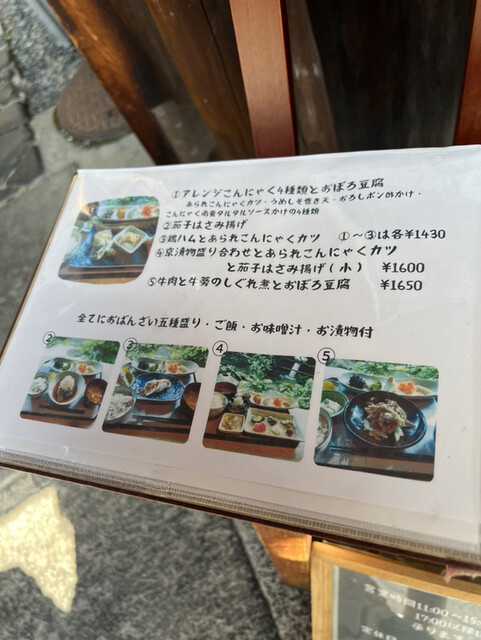 ①アレンジこんにゃく4種類とおぼろ豆腐
あられこんにゃくカツ・うめしそ巻き天・おろしポン酢かけ・
こんにゃく南蛮タルタルソースかけの4種類
②茄子はさみ揚げ
③鶏ハムとあられこんにゃくカツ ①～③は各¥1430
④京漬物盛り合わせとあられこんにゃくカツ
と茄子はさみ揚げ(小) ¥1600
⑤牛肉と牛蒡のしぐれ煮とおぼろ豆腐 ¥1650
全てにおばんざい五種盛り・ご飯・お味噌汁・お漬物付
② ③ ④ ⑤
営業時間11:00～15
17:00以
承りま
定休日